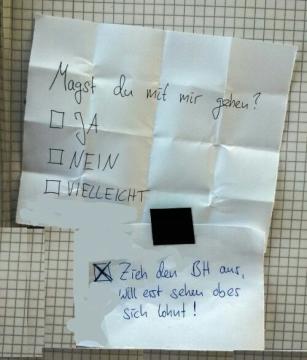 Magst du mit mir gehen?
☐ JA
☐ NEIN
☐ VIELLEICHT
☒ Zieh den BH aus,
will erst sehen obes
sich lohnt!